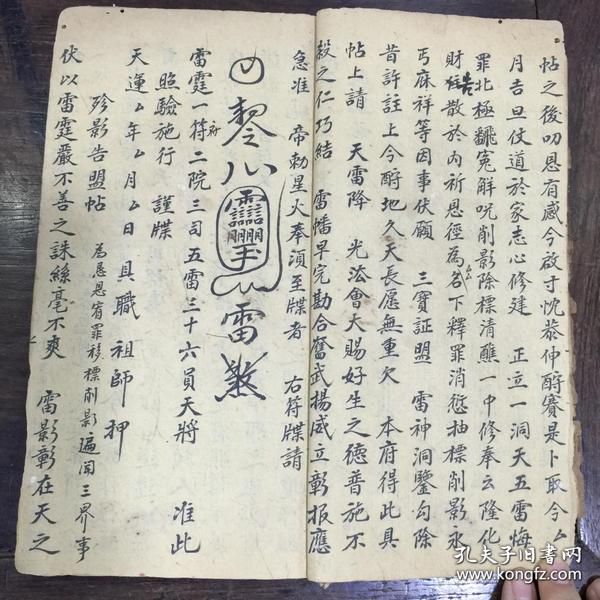 帖之後叨恩有感今啟寸忱恭伸酧賽是卜取今厶
月吉旦仗道於家志心修建 正立一洞天五雷悔
罪北極翻冤解呪削影除標清醮一中修奉云隆化
財告散於內祈恩徑為名下釋罪消愆抽標削影永
丐庥祥等因事伏願 三寶証盟 雷神洞鑒勾除
昔許註上今酧地久天長愿無重欠 本府得此具
帖上請 天雷降 光法會大賜好生之德普施不
殺之仁巧結 雷幡早完勘合奮武揚威立彰报應
急准 帝勅星火奉須至牒者 右符牒請
雷
雷霆一府符二院三司五雷三十六員天將 准此
照驗施行 謹牒
天運厶年厶月厶日具職 祖師押
殄影告盟帖 為恳恩宥罪移標削影遍闻三界事
伏以雷霆嚴不善之誅絲毫不爽 雷影彰在天之
孔夫子旧書网
www.kongfz.com